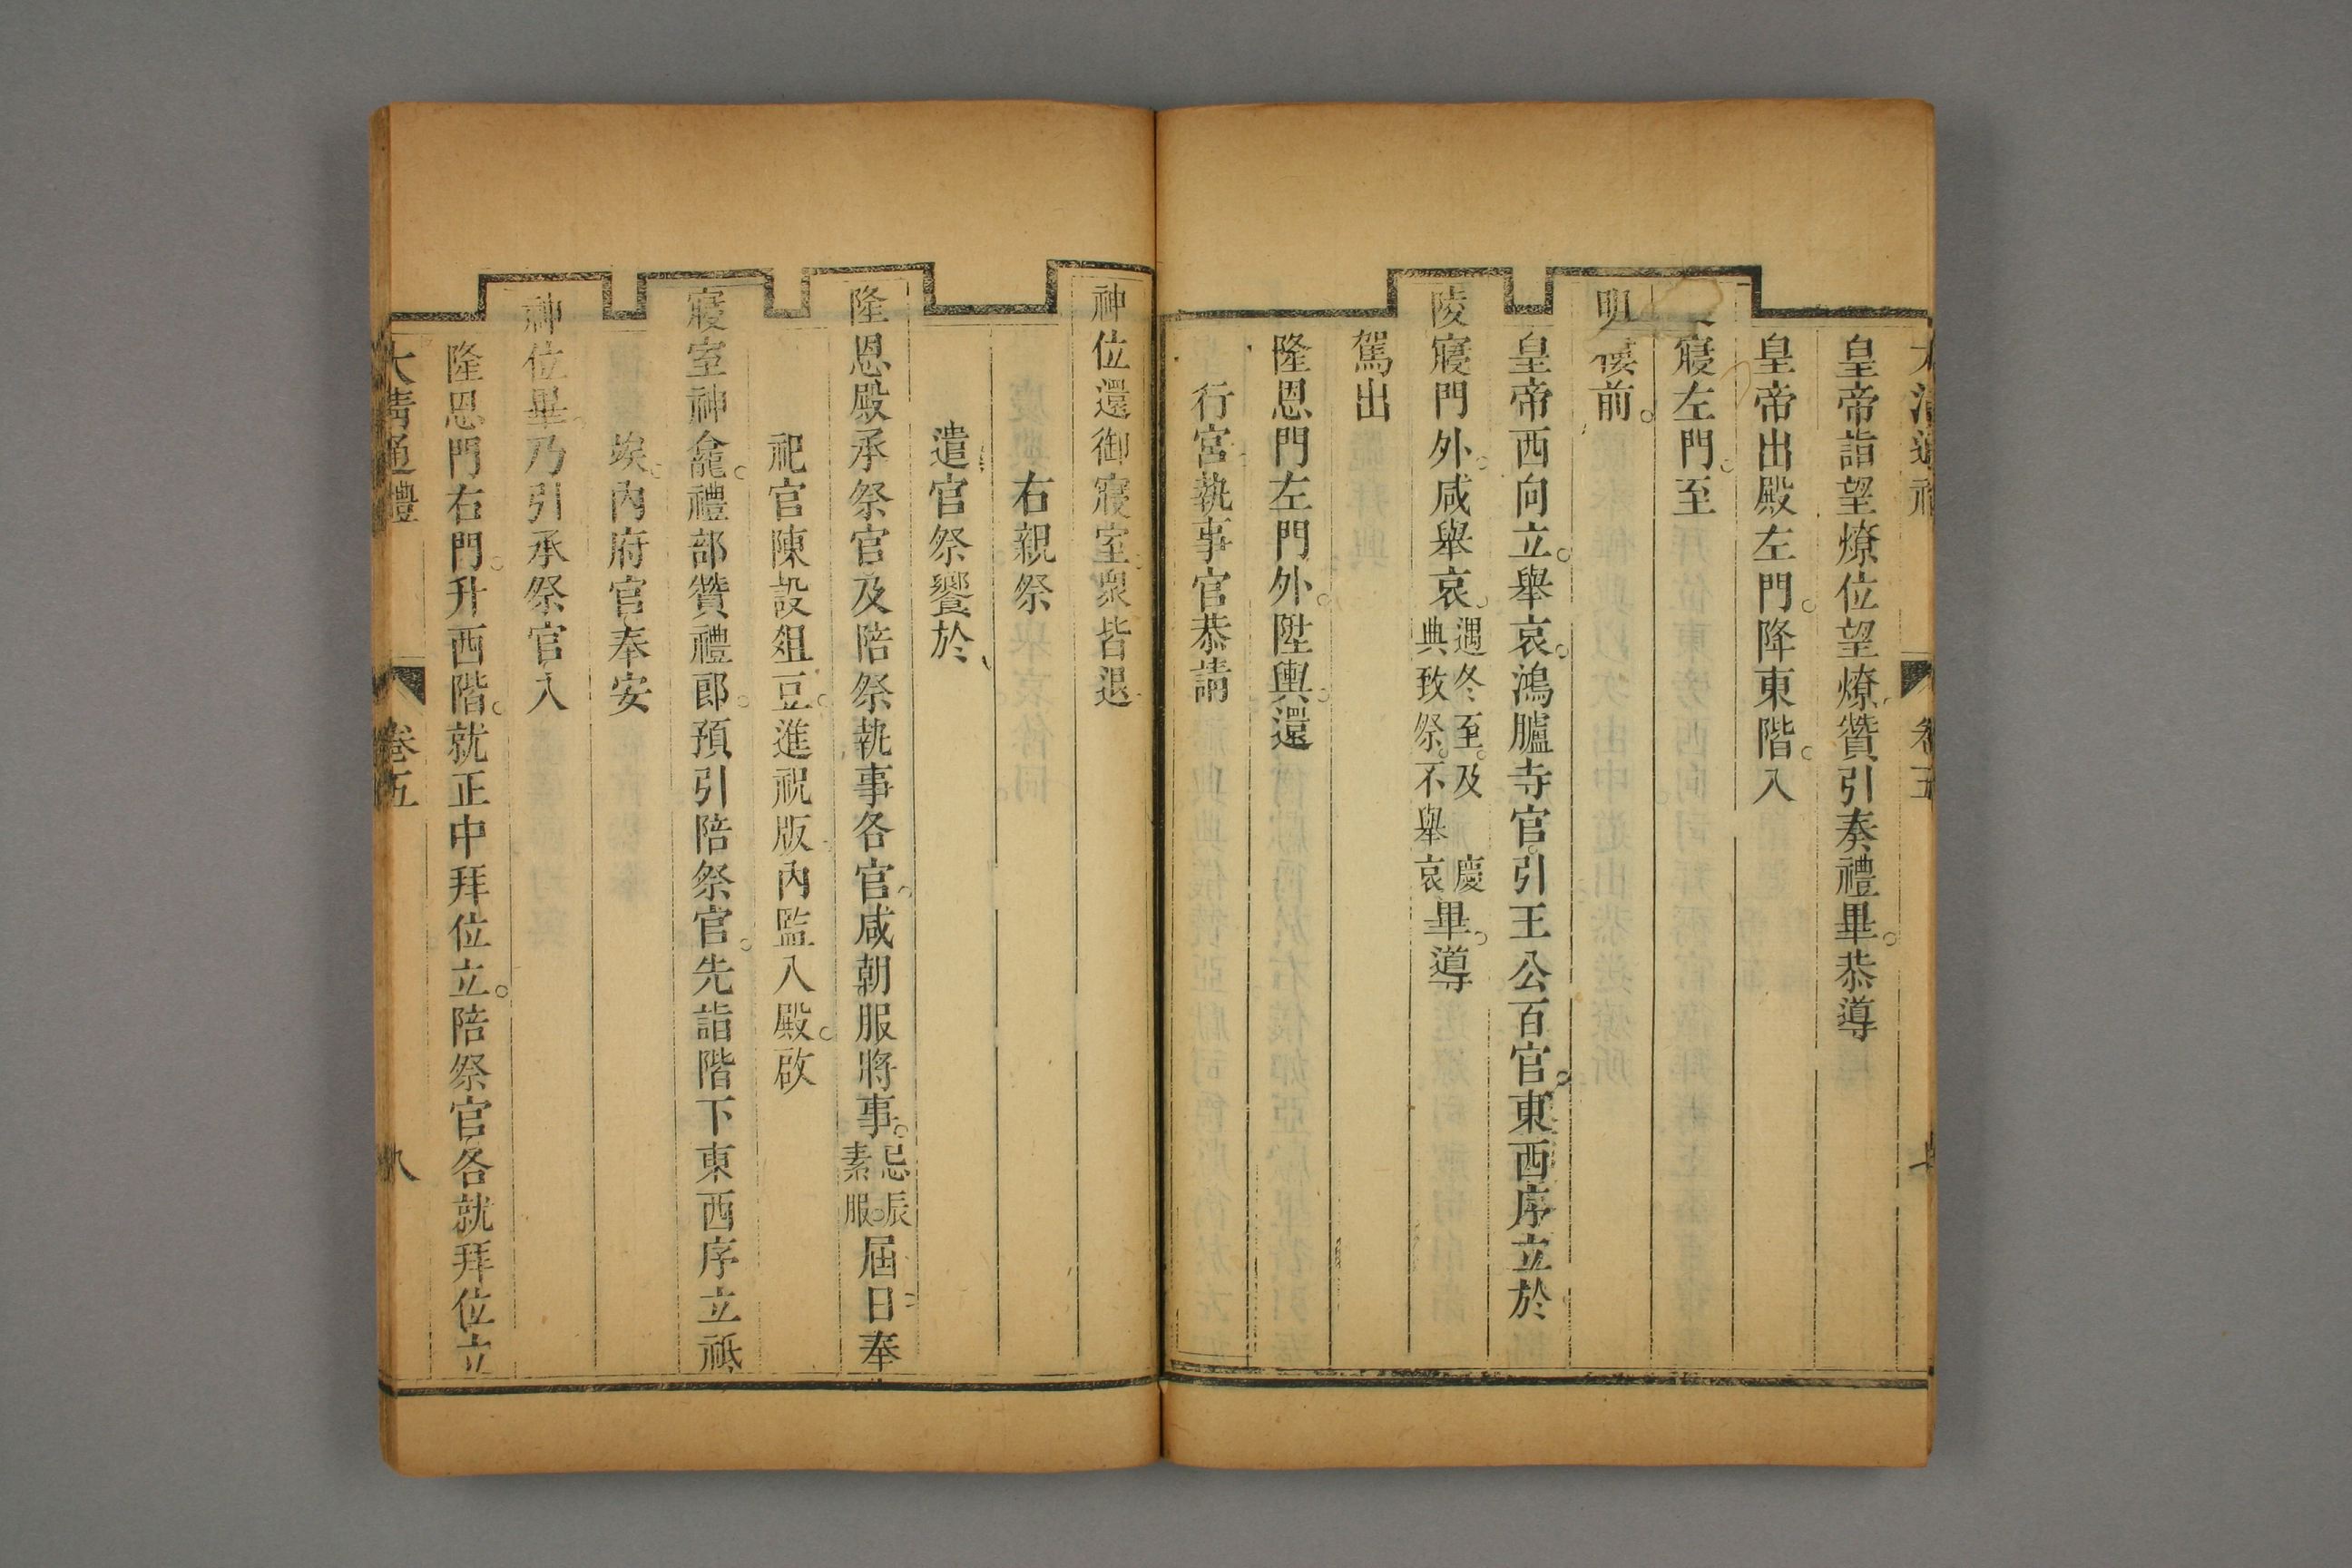 大清通禮 卷五
皇帝詣望燎位望燎贊引奏禮畢。恭導
皇帝出殿左門。降東階。入
寢左門。至
明樓前。
皇帝西向立。舉哀。鴻臚寺官。引王公百官。東西序立於
陵寢門外。咸舉哀。遇冬至。及慶典致祭。不舉哀畢。導
駕出
隆恩門左門外。陞輿。還
行宮。執事官恭請
神位還御寢室。眾皆退。
右親祭
遣官祭饗於
隆恩殿承祭官及陪祭執事各官。咸朝服將事。忌辰素服。屆日。奉
祀官陳設俎豆。進祝版。內監入殿。啟
寢室神龕。禮部贊禮郎。預引陪祭官。先詣階下東西序立祗
埃。內府官奉安
神位畢。乃引承祭官入
隆恩門右門。升西階。就正中拜位立。陪祭官各就拜位立
大清通禮 卷五 八